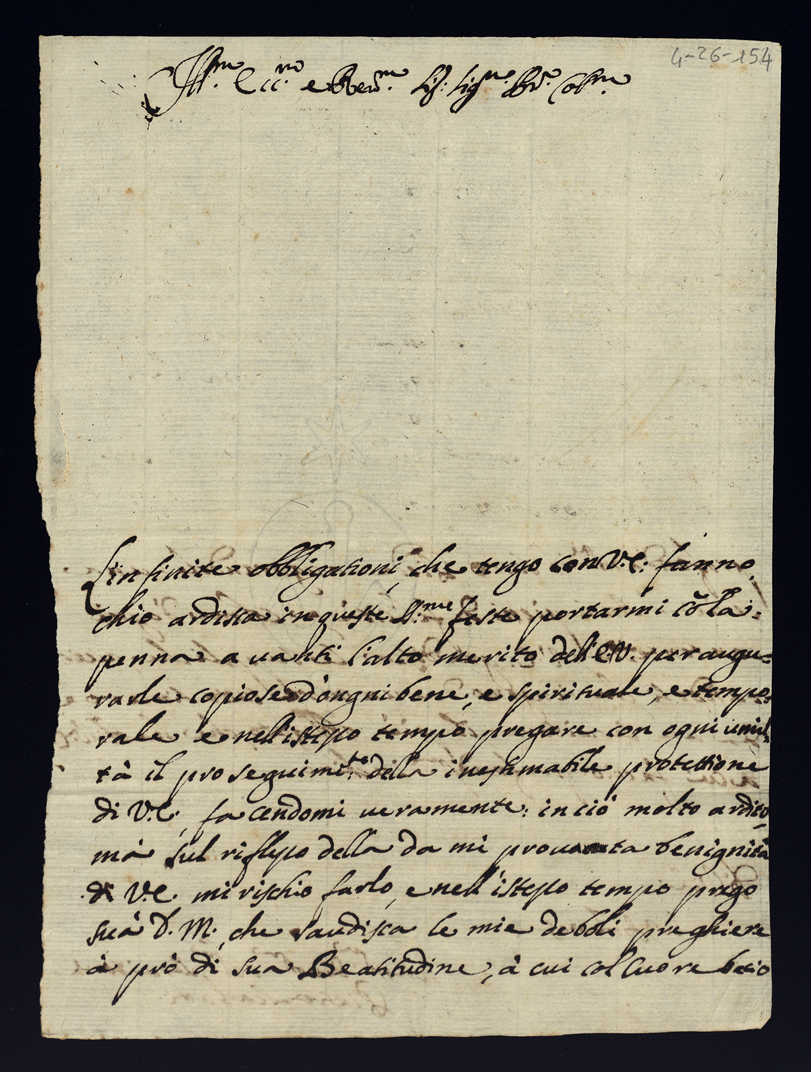 4-26-154
Ill.mo Ecc.mo e Rev.mo Sig: Sig.re P.rõ Col.mo
L'infinite obbligationi, che tengo con V.E: fanno,
chio ardisca in queste S.me feste portarmi cõ la
penna avanti l'alto merito dell'E.V. per augu=
rarle copiose d'ongni bene, e spirituale, e tempo=
rale e nell'istesso tempo pregare con ogni umil
tà il proseguim.to della inestimabile protettione
di V.E, facendomi veramente: in ciò molto ardito,
mà sul riflesso della da mi provata benignità
di V.E mi rischio farlo, e nell'istesso tempo prego
suà D. M. che saudisca le mie deboli preghiere
à prò di sua Beatitudine, à cui col cuore bacio